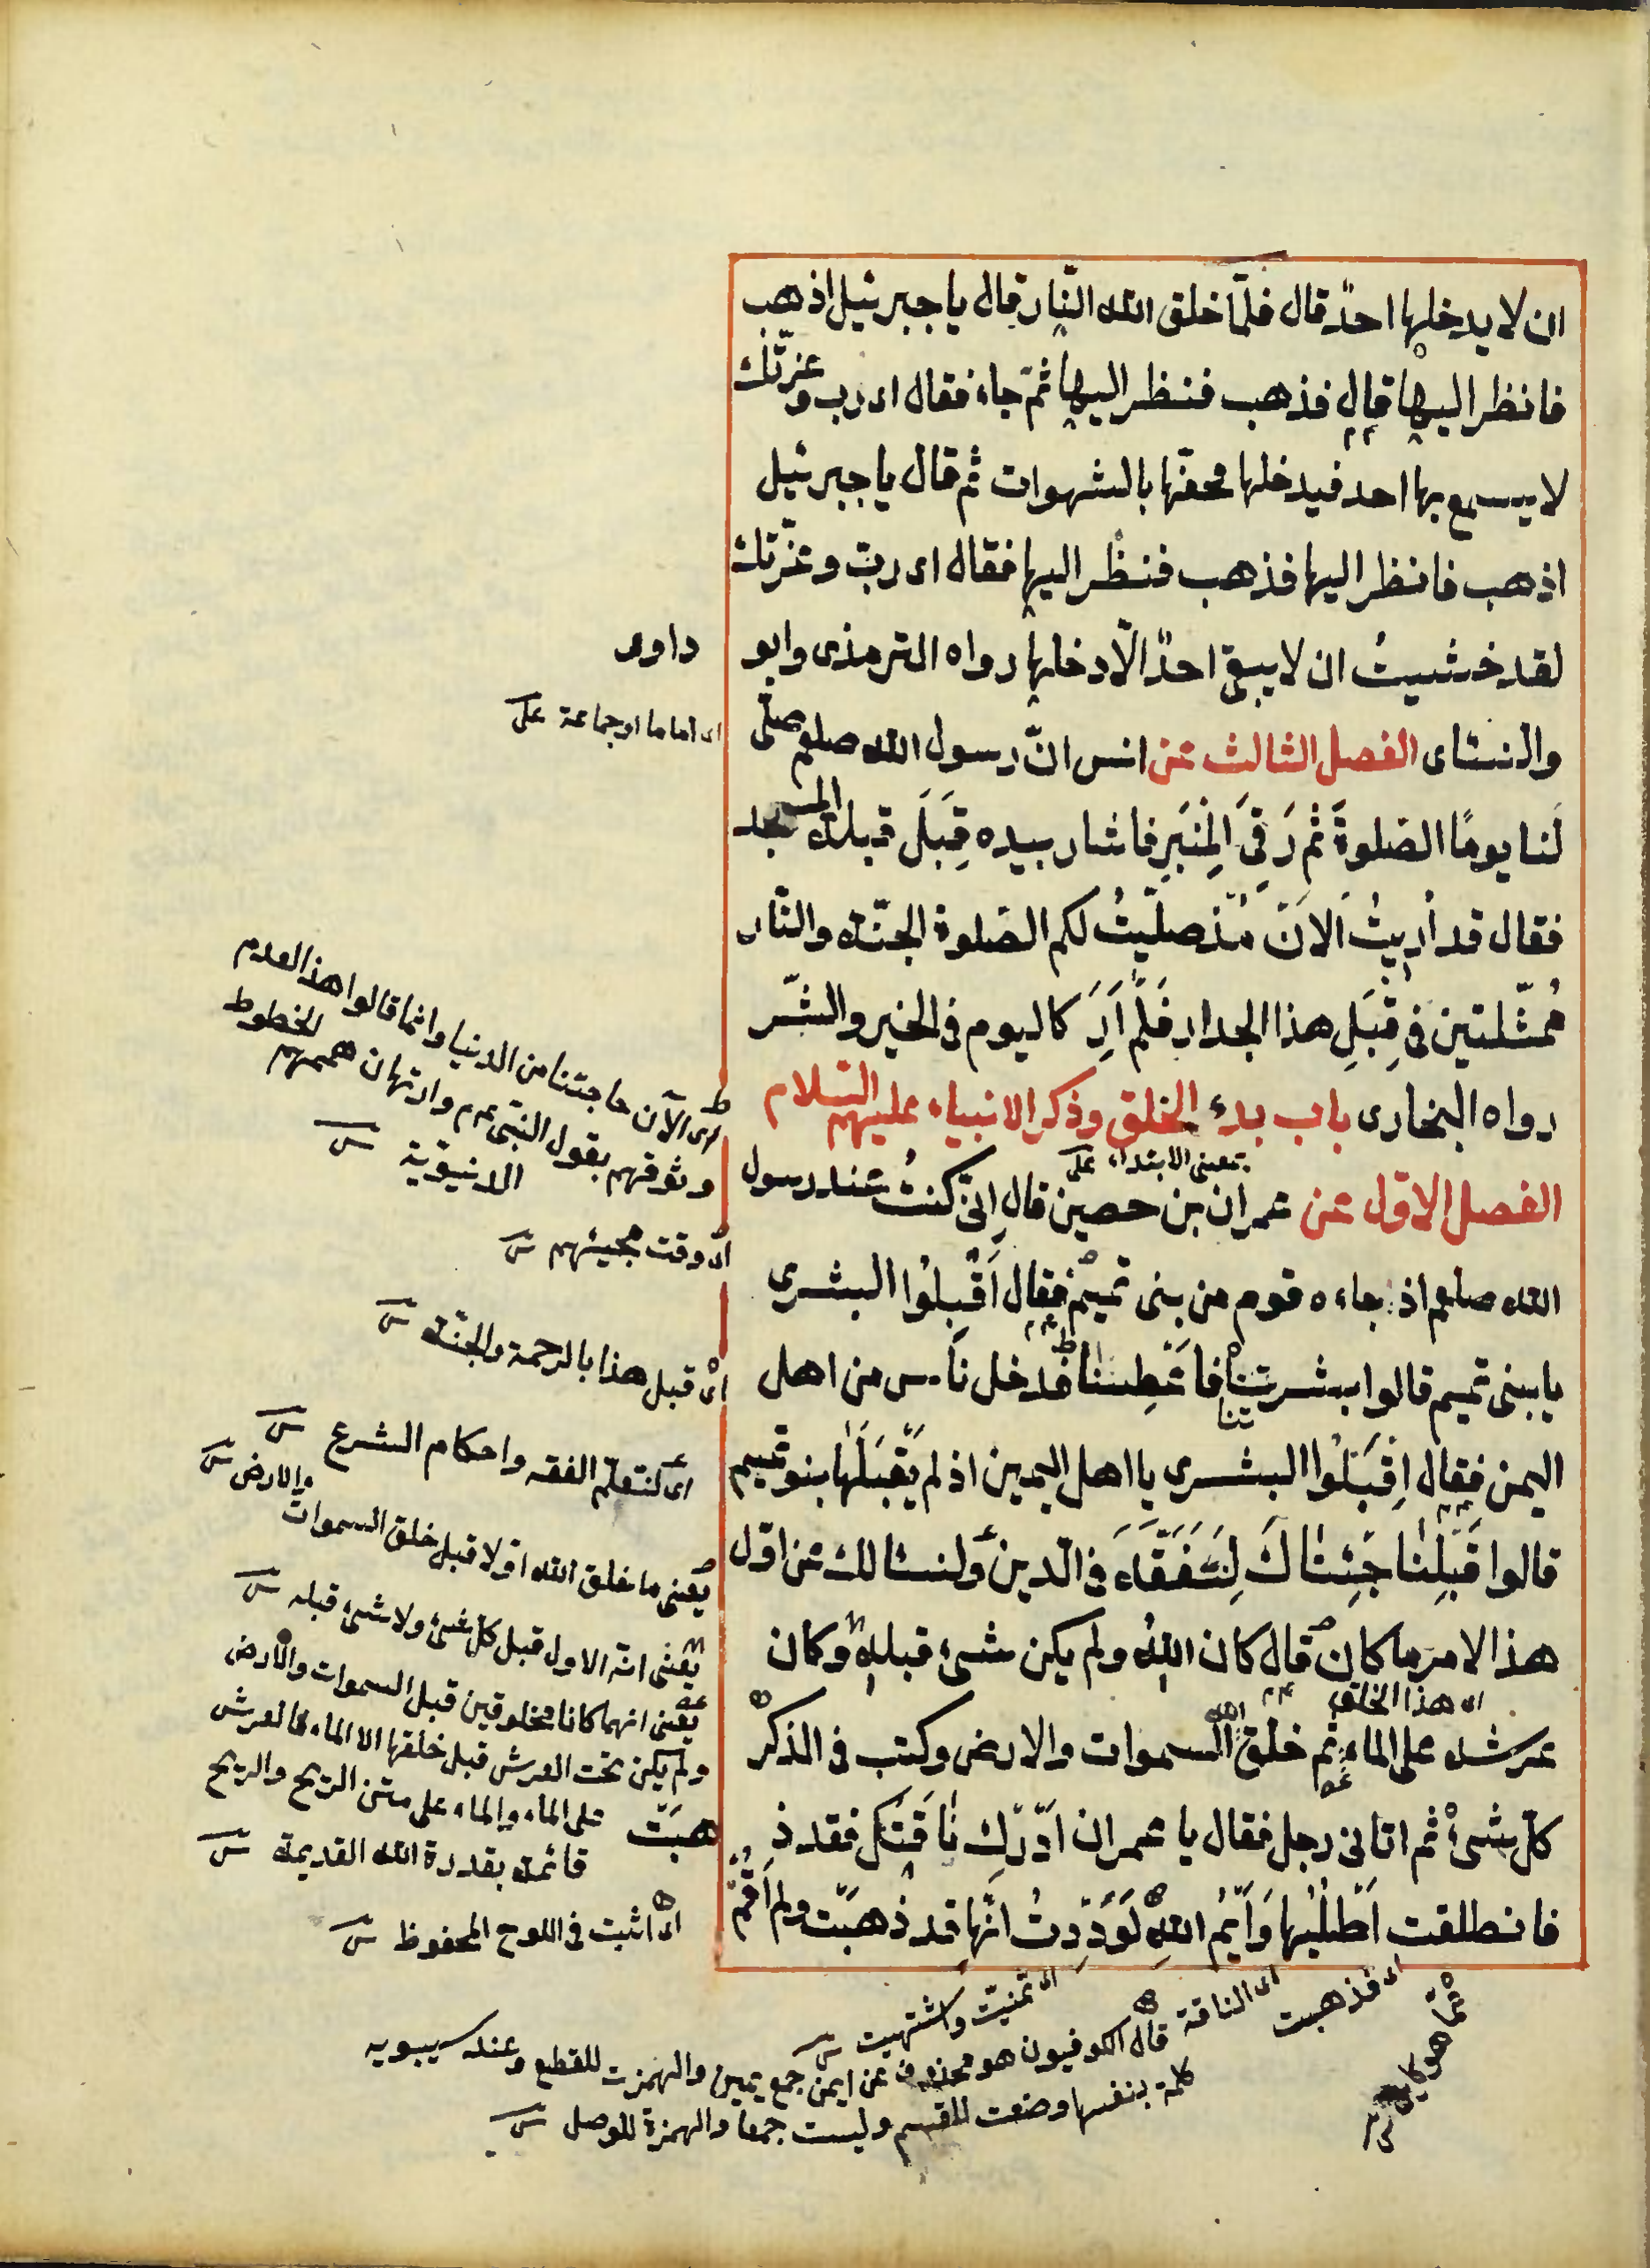 ان لا يدخلها احدٌ قال فلمّا خلق الله النّار قال يا جبرئيل اذهب
فانظر اليها قال فذهب فنظر اليها ثمّ جاء فقال اى رب وعزّتك
لا يسمع بها احد فيدخلها فحفّها بالشهوات ثم قال يا جبرئيل
اذهب فانظر اليها فذهب فنظر اليها فقال اى ربّ وعزّتك
لقد خشيتُ ان لا يبقى احدٌ الّا دخلها رواه الترمذى وابو
داود
والنسائى الفصل الثالث عن انس انّ رسول الله صلعم صلّى
اى اماما او جماعة على
لنا يومًا الصلوةَ ثم رَقِىَ المِنبَرِ فاشار بيده قِبَلَ قبلة المسجد
فقال قد أُريتُ الآنَ مُذ صلّيتُ لكم الصلوة الجنّة والنّار
مُمثّلتين فى قِبَلِ هذا الجدار فَلَم اَرَ كاليوم فى الخير والشّر
رواه البخارى باب بدء الخلق وذكر الانبياء عليهم السّلام
بمعنى الابتداء على
الفصل الاوّل عن عمران بن حصين قال اِنّى كنتُ عند رسول
الله صلعم اذ جاءه قوم من بنى تميم فقال اَقْبِلُوا البشرى
يا بنى تميم قالوا بشرتنا فاَعْطِنا فدخل ناس من اهل
تنا
اليمن فقال اِقْبَلُوا البشرى يا اهل اليمين اذ لم يَقْبَلها بنو تميم
قالوا قَبِلنا جَئِناكَ لِنَتَفَقَّهَ فى الّدين ولنسئالك عن اوّل
هذا الامر ما كان قال كان اللهُ ولم يكن شىء قبله وكان
اى هذا الخلق
عرشه على الماء ثم خلق الله السموات والارض وكتب فى الذكر
كلّ شىء ثم اتانى رجل فقال يا عمران اَدْرِك ناقَتَك فقد ذ
هبَتْ
فانطلقت اَطْلُبُها وَاَيْمُ اللهِ لَوَدِدتُ انّها قد ذهبَت ولم اَقُمْ
اى الآن حاجتنا من الدنيا وانما قالوا هذا لعدم
وثوقهم بقول النبى عم وارتهان هممهم للخطوط
الدنيويّة س
اى وقت مجيئهم س
اى قبل هذا بالرحمة والجنّة س
اى لنتعلّم الفقه واحكام الشرع س
يعنى ما خلق الله اوّلا قبل خلق السموات والارض س
يعنى انّه الاول قبل كلّ شىء ولا شىء قبله س
يعنى انهما كانا مخلوقين قبل السموات والارض
ولم يكن تحت العرش قبل خلقها الا الماء فالعرش
على الماء والماء على متن الريح والريح
قائمة بقدرة الله القديمة س
اى اثبت فى اللوح المحفوظ س
اى فذهبت
اى الناقة
اى تمنيّت واشتهيت س
قال الكوفيون هو محذوف عن ايمن جمع يمين والهمزت للقطع وعند سيبويه
كلمة بنفسها وضعت للقسم وليست جمعا والهمزة للوصل س